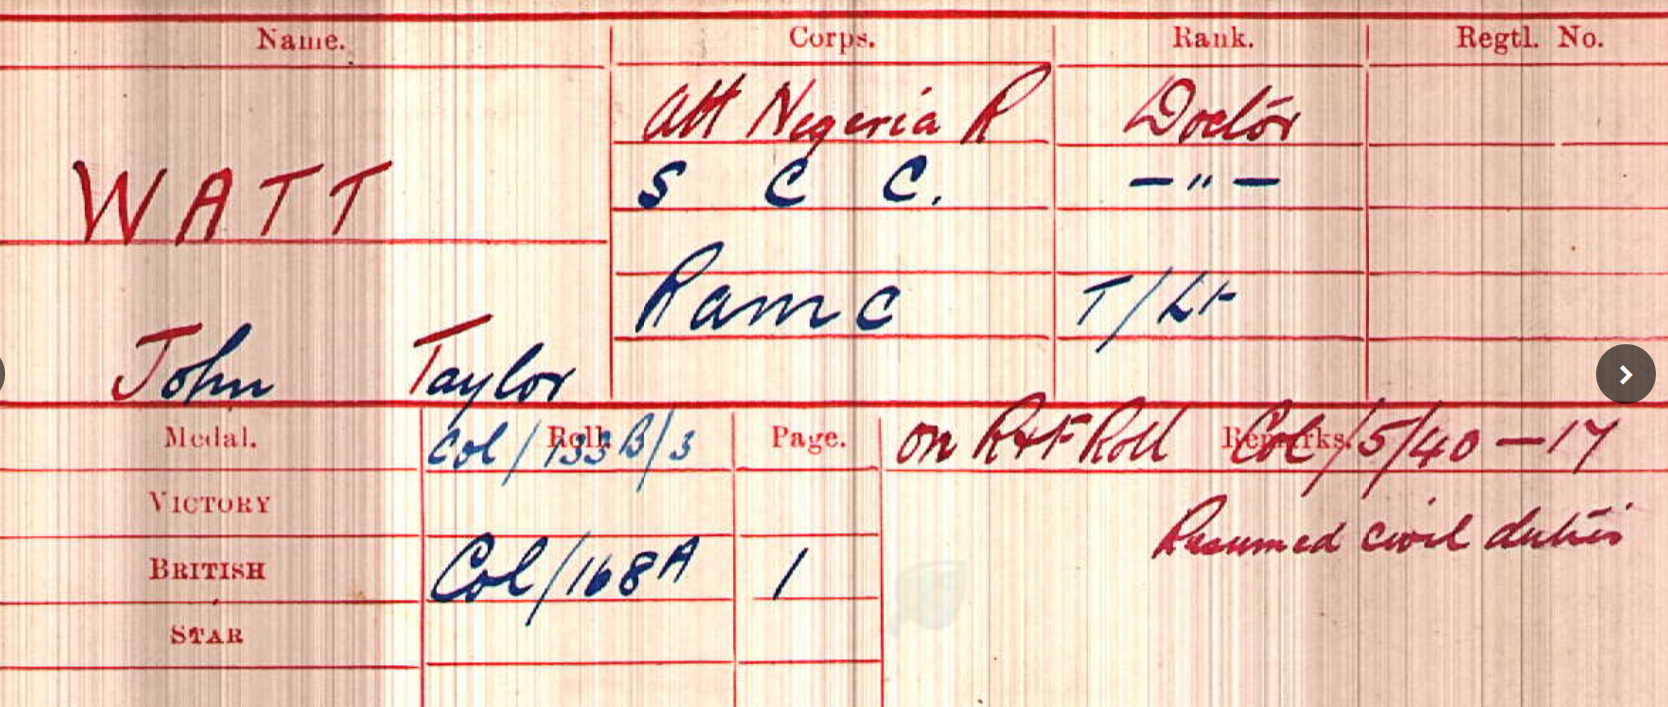 Name. Corps. Rank. Regtl. No.
Att Negeria R Doctor
WATT S C C. — " —
John Taylor RamC T/Lt
Medal. Roll. Page. Remarks.
Col/133B/3 on R&F Roll Col/5/40-17
VICTORY Resumed civil duties
BRITISH Col/168A 1
STAR